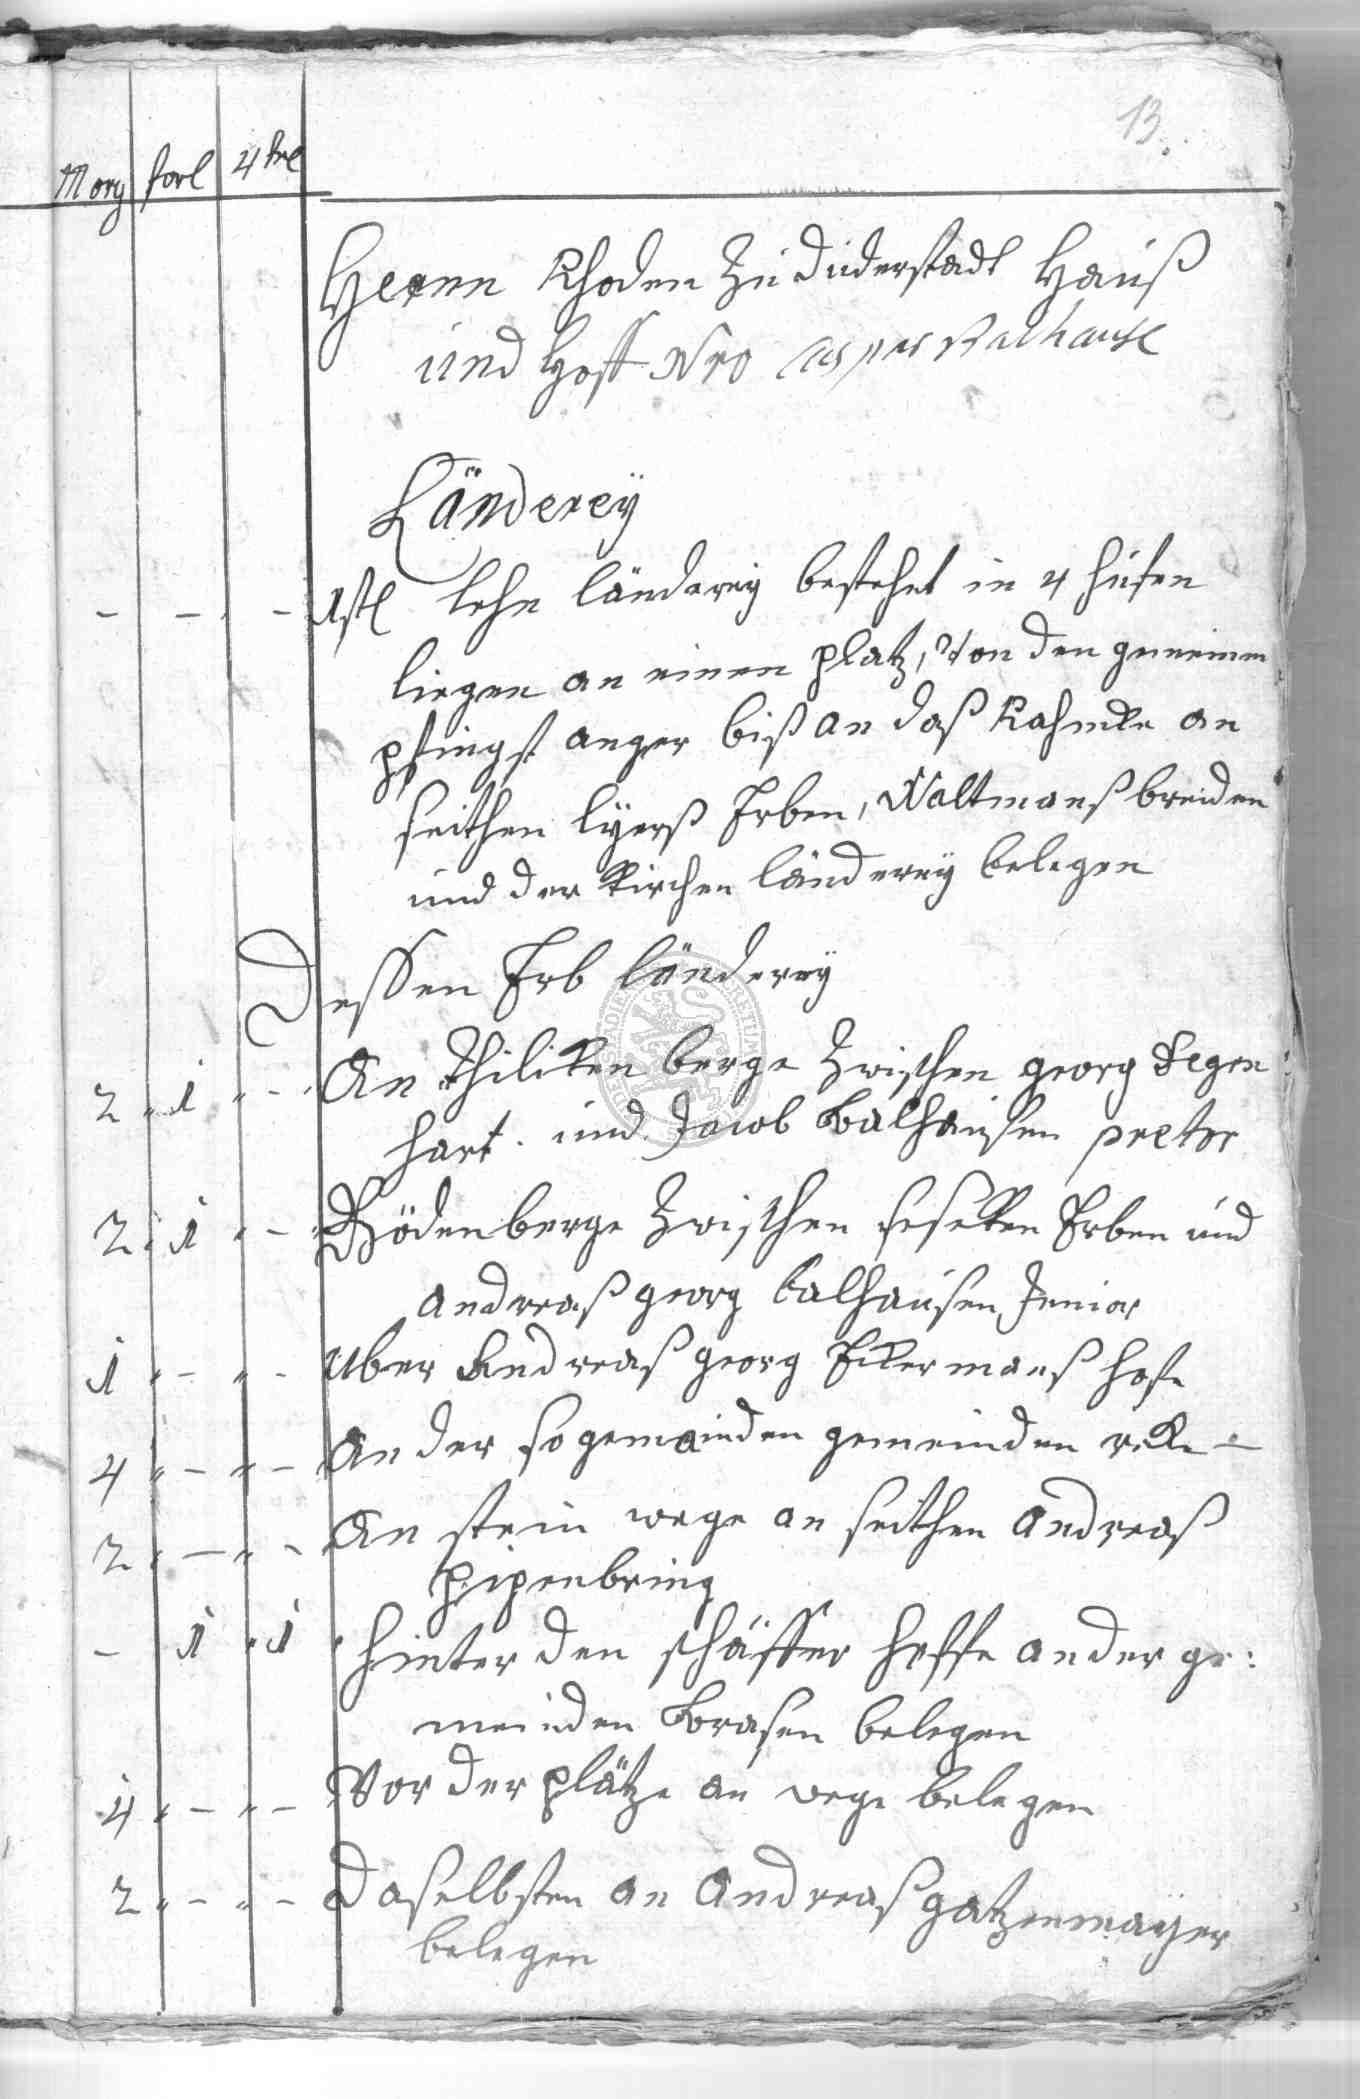 13.
Morg forl 4tel
Herrn Rhoden zu duderstadt Hauß
und Hoff Nro
Länderey
lehn länderey bestehet in 4 hufen
liegen an einen platz, Von den gemeinen
pfingst anger biß an daß an
seithen lyerß Erben, Waltmanß breiden
und der kirchen länderey belegen
Dessen Erb länderey
2 " 1 " - " An thiliken berge zwischen georg Degen:
hart und Jacob Balhausen pretor
2 " 1 " - " Bödenberge zwischen Erben und
andreaß georg balhausen Junior
1 " - " - Uber Andreaß georg Eckermanß hofe
4 " - " - An der gemeinden
2 " - " - An stein wege an seithen Andreaß
pipenbring
- 1 " 1 " hinter den schäffer hoffe an der ge:
meinden Brasen belegen
4 " - " - Vor der plätze an wege belegen
2 " - " - Daselbsten an Andreaß gatzenmayer
belegen